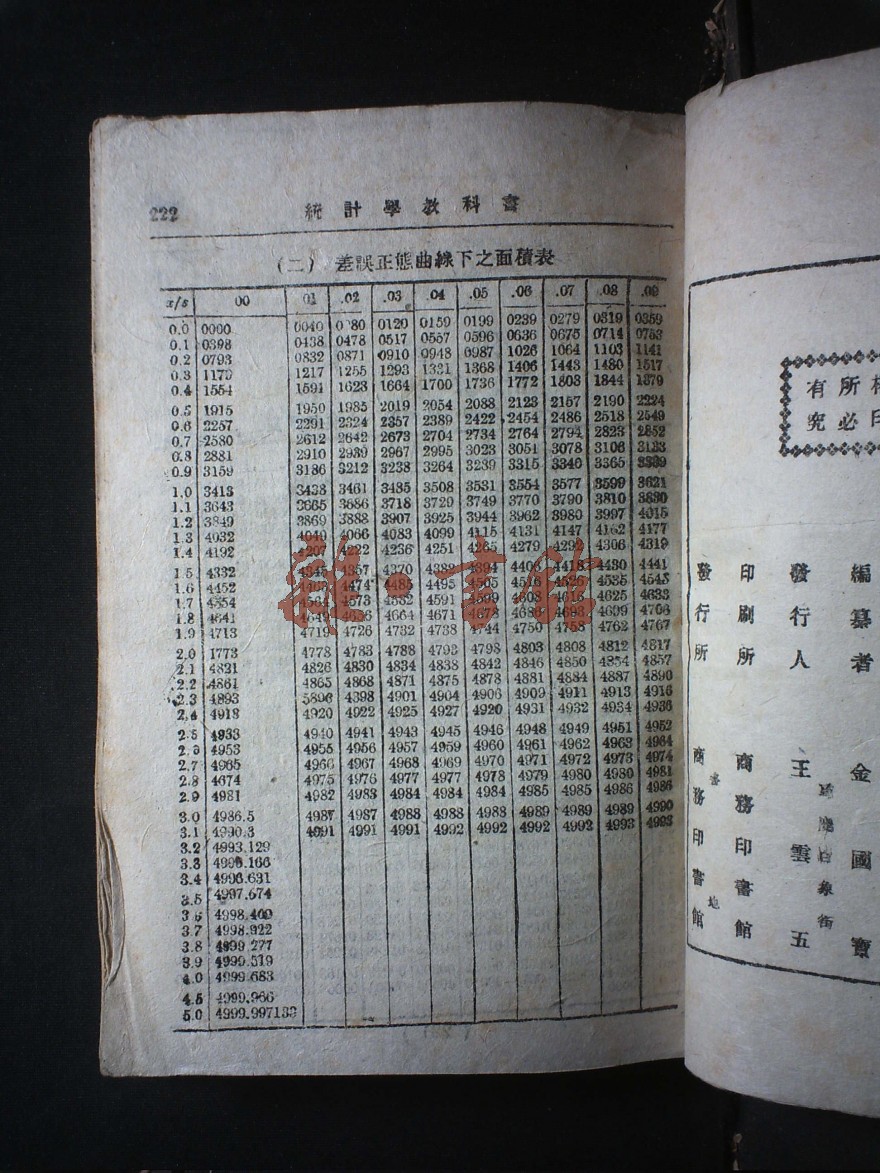 222
統計學教科書
(二) 差誤正態曲線下之面積表
x/s 00 01 .02 .03 .04 .05 .06 .07 .08 .09
0.0 0000 0040 0080 0120 0159 0199 0239 0279 0319 0359
0.1 0398 0438 0478 0517 0557 0596 0636 0675 0714 0753
0.2 0793 0832 0871 0910 0948 0987 1026 1064 1103 1141
0.3 1179 1217 1255 1293 1331 1368 1406 1443 1480 1517
0.4 1554 1591 1623 1664 1700 1736 1772 1808 1844 1879
0.5 1915 1950 1985 2019 2054 2088 2123 2157 2190 2224
0.6 2257 2291 2324 2357 2389 2422 2454 2486 2518 2549
0.7 2580 2612 2642 2673 2704 2734 2764 2794 2823 2852
0.8 2881 2910 2939 2967 2995 3023 3051 3078 3106 3133
0.9 3159 3186 3212 3238 3264 3289 3315 3340 3365 3389
1.0 3413 3438 3461 3485 3508 3531 3554 3577 3599 3621
1.1 3643 3665 3686 3718 3729 3749 3770 3790 3810 3830
1.2 3849 3869 3888 3907 3925 3944 3962 3980 3997 4015
1.3 4032 4049 4066 4083 4099 4115 4131 4147 4162 4177
1.4 4192 4207 4222 4236 4251 4265 4279 4292 4306 4319
1.5 4332 4345 4357 4370 4382 4394 4406 4418 4430 4441
1.6 4452 4474 4485 4495 4505 4516 4526 4535 4545
1.7 4554 4564 4573 4582 4591 4599 4608 4616 4625 4633
1.8 4641 4649 4656 4664 4671 4678 4686 4693 4699 4706
1.9 4713 4719 4726 4732 4738 4744 4750 4758 4762 4767
2.0 1773 4778 4783 4788 4793 4798 4803 4808 4812 4817
2.1 4821 4826 4830 4834 4838 4842 4846 4850 4854 4857
2.2 4861 4865 4868 4871 4875 4878 4881 4884 4887 4890
2.3 4893 5896 4398 4901 4904 4906 4909 4911 4913 4916
2.4 4918 4920 4922 4925 4927 4920 4931 4932 4934 4936
2.5 4933 4940 4941 4943 4945 4946 4948 4949 4951 4952
2.6 4953 4955 4956 4957 4959 4960 4961 4962 4963 4964
2.7 4965 4966 4967 4968 4969 4970 4971 4972 4973 4974
2.8 4674 4975 4976 4977 4977 4978 4979 4980 4980 4981
2.9 4981 4982 4983 4984 4984 4984 4985 4985 4986 4986
3.0 4986.5 4987 4987 4988 4988 4988 4989 4989 4989 4990
3.1 4990.3 4991 4991 4991 4992 4992 4992 4992 4993 4993
3.2 4993.129
3.3 4995.166
3.4 4996.631
3.5 4997.674
3.6 4998.409
3.7 4998.922
3.8 4999.277
3.9 4999.519
4.0 4999.683
4.5 4999.966
5.0 4999.997133
有所
究必印
編纂者 金國寶
發行人 王雲五
印刷所 商務印書館
發行所 商務印書館